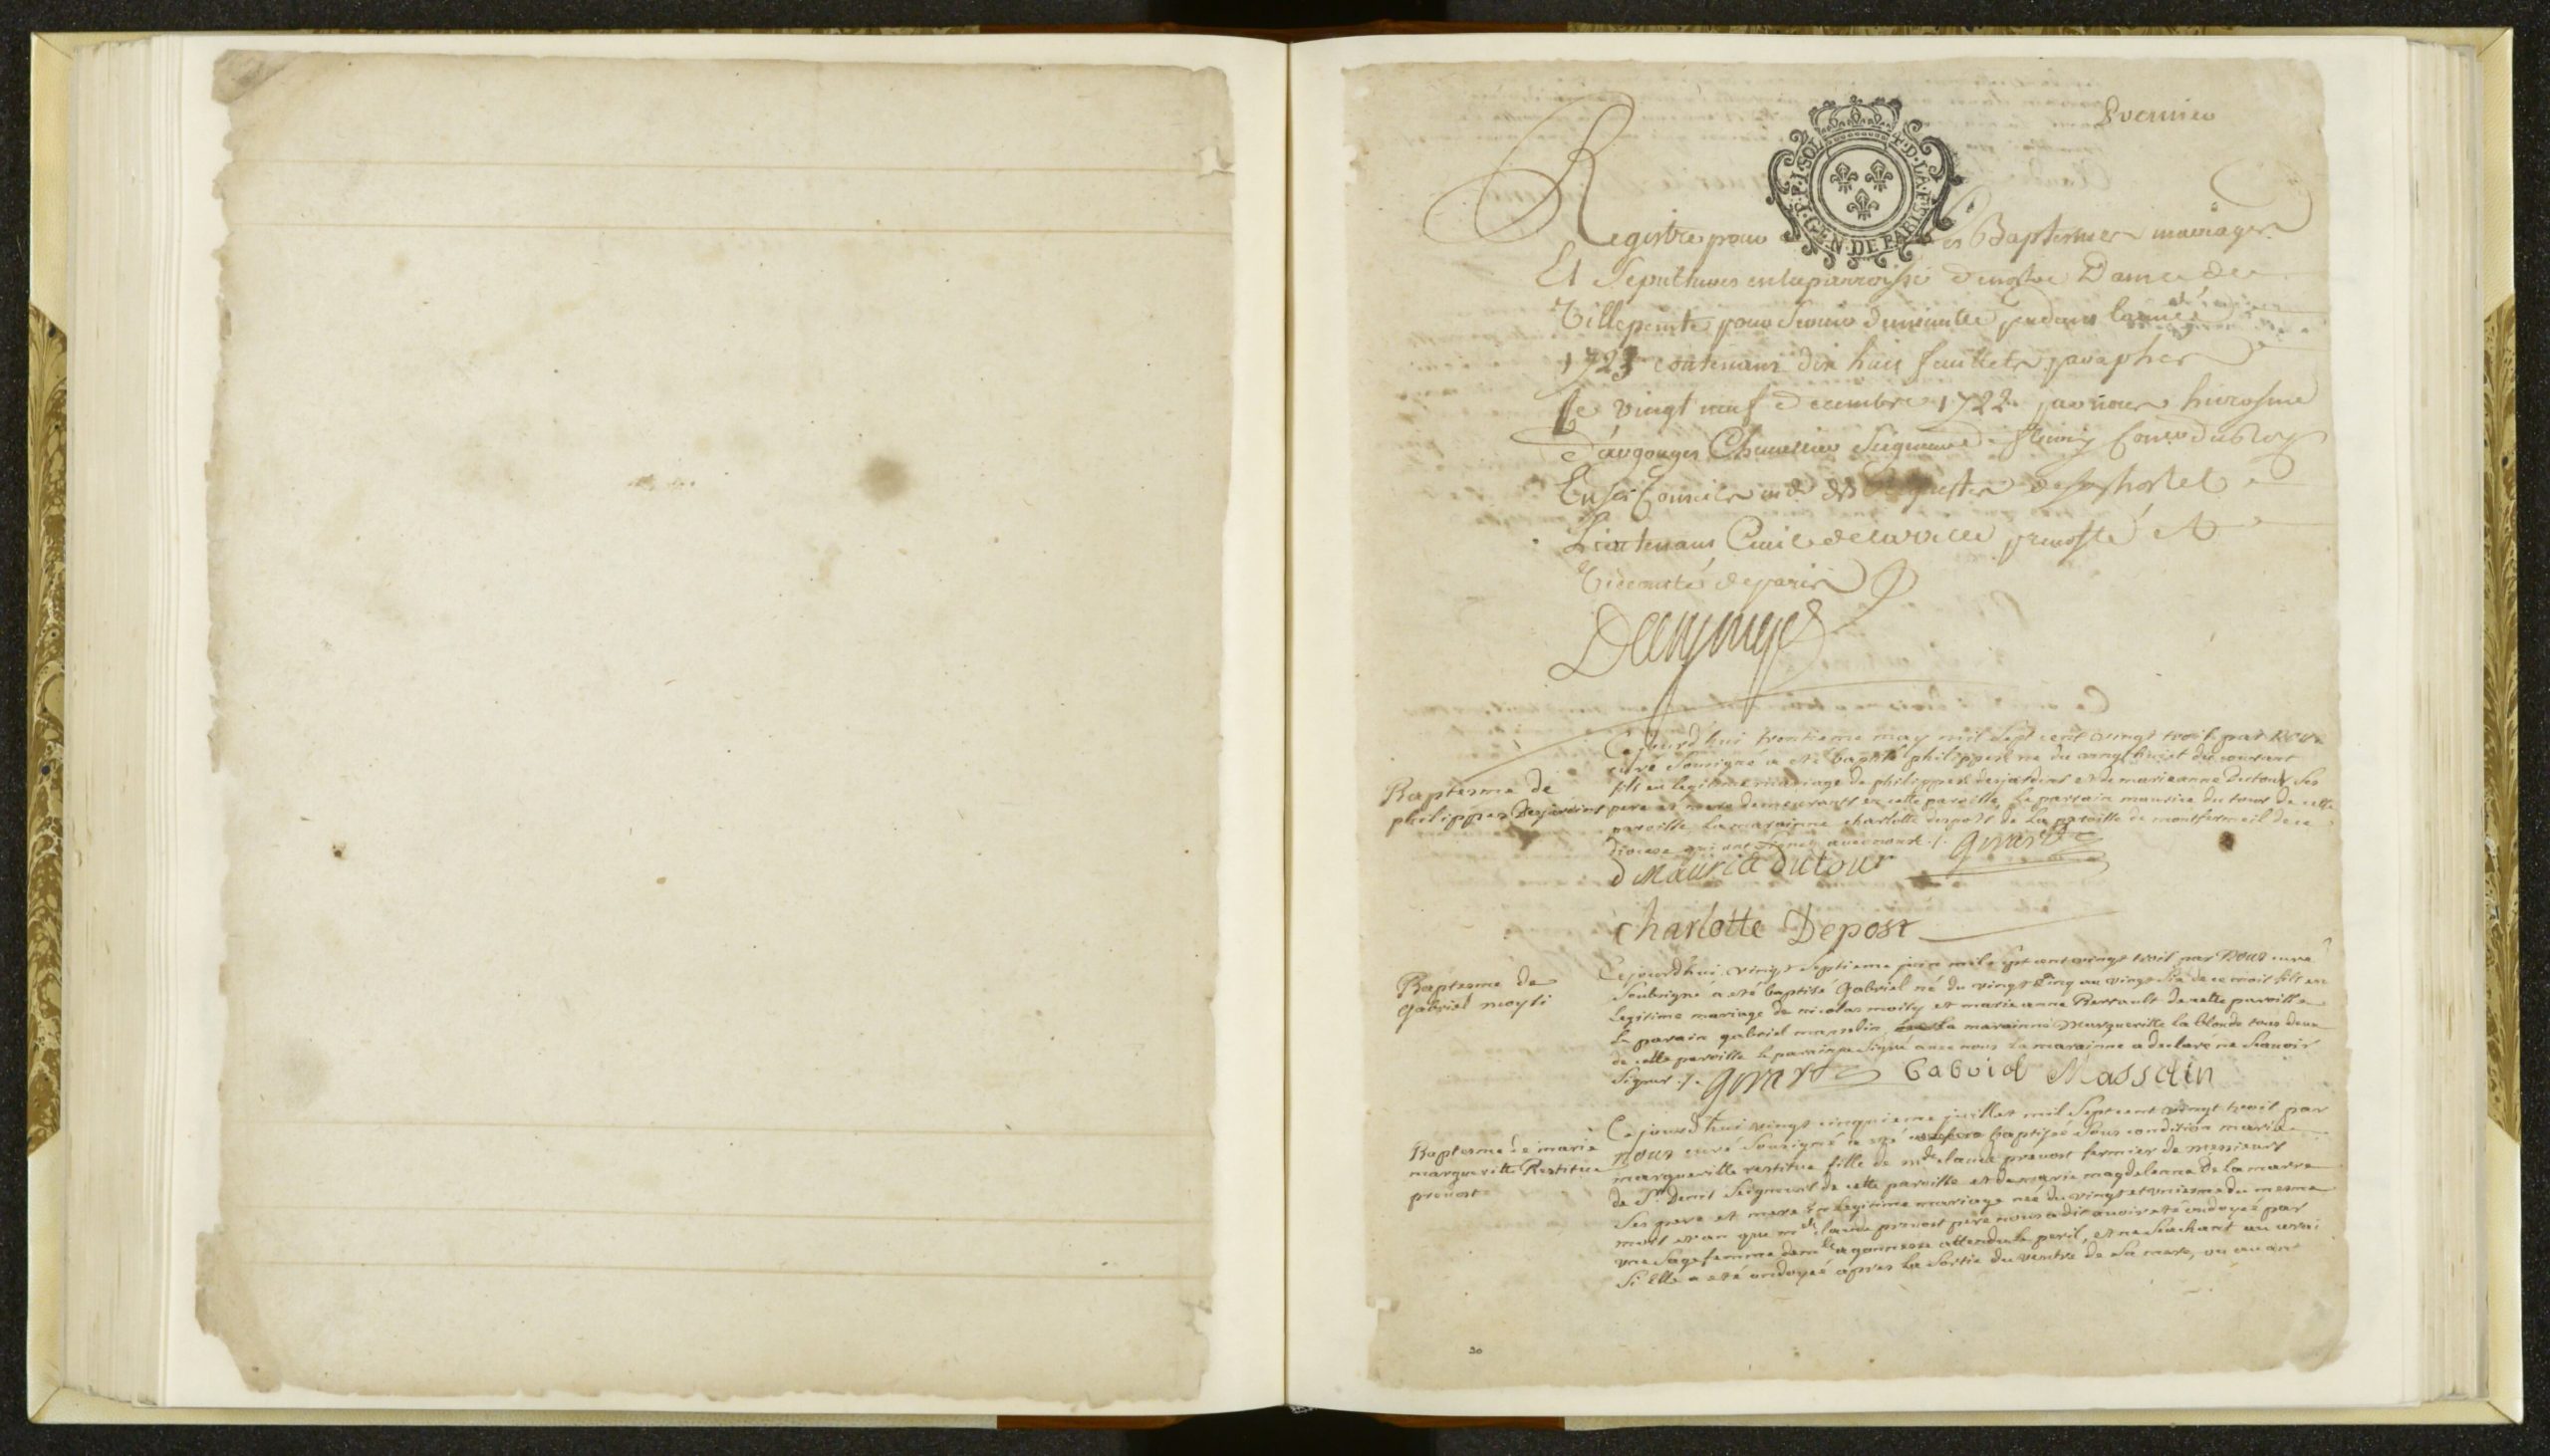 Premier
Registre pour les Baptesmes mariages
Et Sepultures en la parroisse de nostre Dame de
Villepinte pour servir de minutte pendant lannée
1723 contenant dix huit feuillets paraphez
Le vingt neuf decembre 1722 par nous hierosme
d'argouges Chevalier Seigneur de fleury Coner du Roy
En ses Conseils me des Requestes de son hostel
Lieutenant Civil de la ville prevosté et
Vicomté de paris
Dargouges
Cejourd'hui trentieme may mil sept cent vingt trois par nous
curé sousigné a eté baptisé philippes né du vingt huict du courant
fils en legitime mariage de philippes desjardins et de marieanne dutour ses
Baptesme de
philippes Desjardins
pere et mere demeurants en cette paroisse, le parrain maurice du tour de cette
paroisse, la marainne charlotte despost de la paroisse de montfermeil de ce
diocese qui ont signé avec nous ./. Girard
Maurice dutour
charlotte Depost
Baptesme de
gabriel moysi
Cejourdhui vingt septieme juin mil sept cent vingt trois par nous curé
Soubsigné a eté baptisé Gabriel né du vingt cinq au vingt six de ce mois fils en
Legitime mariage de nicolas moisy et marie anne Perrault de cette paroisse
le parain gabriel masselin, la marainne Margueritte la blonde tous deux
de cette paroisse le parain a Signé avec nous La marainne a declaré ne Scavoir
Signer ./. Girard Gabriel Masselin
Baptesme de marie
margueritte Restitue
prevost
Cejourd'hui vingt cinquieme juillet mil Sept cent vingt trois par
nous curé Sousigné a eté baptisée Sous condition marie
margueritte restitue fille de me claude prevost fermier de messieurs
de St Denis Seigneurs de cette paroisse et de marie magdelenne De Lamarre
Ses pere et mere En Legitime mariage née du vingt et uniesme du mesme
mois et an que me claude prevost pere nous a dit avoir eté ondoyée par
une Sage femme de gonnesse attendu le peril, et ne Sachant au vrai
Si Elle a eté ondoyée apres la Sortie du ventre de Sa mere, ou avant
20